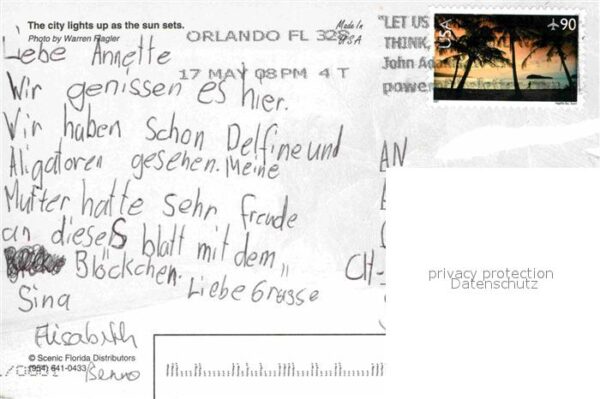 The city lights up as the sun sets.
Photo by Warren Flagler
Made in
USA
ORLANDO FL 328
17 MAY 08 PM 4 T
"LET US
THINK,
John Ada
power
USA
90
Liebe Annette
Wir genissen es hier.
Wir haben schon Delfine und
Aligatoren gesehen. Meine
Mutter hatte sehr freude
an dieses blatt mit dem „
Blöckchen.
Liebe Grüsse
Sina
Elisabeth
Benno
AN
CH-
privacy protection
Datenschutz
© Scenic Florida Distributors
(954) 641-0433